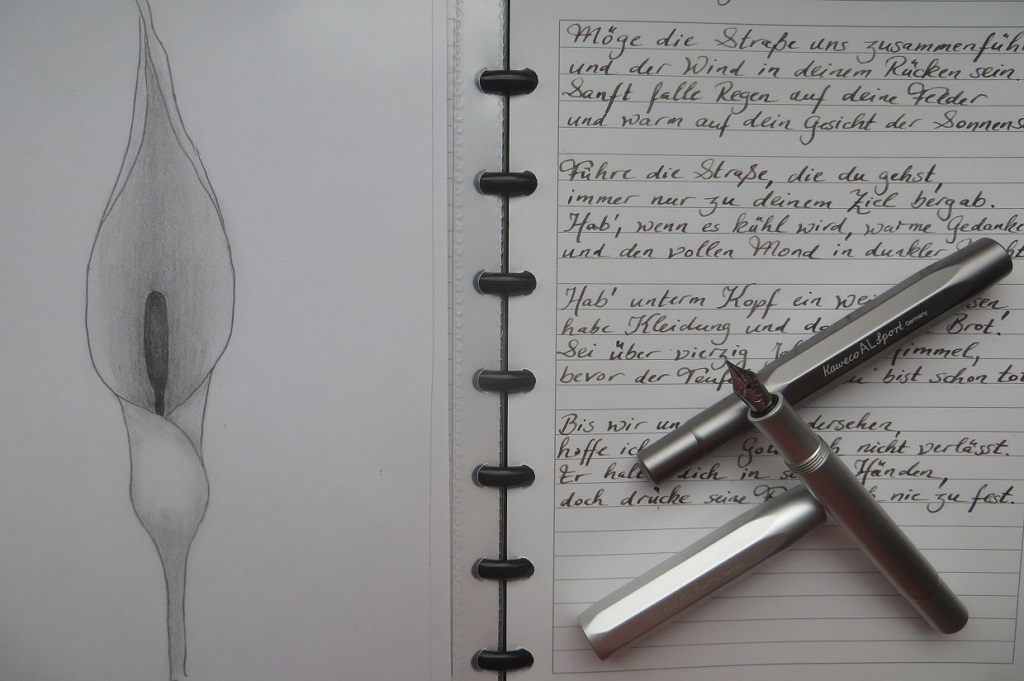 Möge die Straße uns zusammenführ
und der Wind in deinem Rücken sein.
Sanft falle Regen auf deine Felder
und warm auf dein Gesicht der Sonnens
Führe die Straße, die du gehst,
immer nur zu deinem Ziel bergab.
Hab', wenn es kühl wird, warme Gedanke
und den vollen Mond in dunkler
Hab' unterm Kopf ein
habe Kleidung und Brot!
Sei über vierzig
bevor der bist schon tot
Bis wir
hoffe nicht verlässt.
Er in Händen,
doch drücke seine nie zu fest.
Kaweco AL Sport Germany